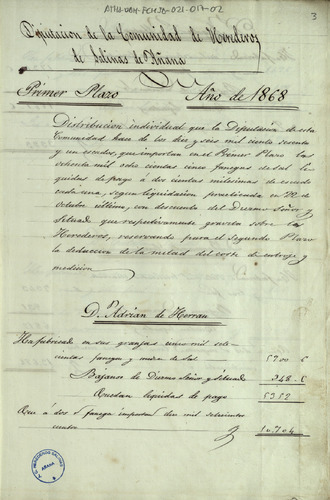 ATHA-UAH-FCHSD-021-017-02
3
Diputacion de la Comunidad de Herederos
de Salinas de Añana
Primer Plazo Año de 1868
Distribucion individual que la Diputacion de esta
Comunidad hace de los diez y seis mil ciento sesenta
y un escudos, que importan en el Primer Plazo las
ochenta mil ocho cientas cinco fanegas de sal li-
quidas de pago á dos cientas milésimas de escudo
cada una, segun liquidacion practicada en de
Octubre último, con descuento del Diezmo Señor y
Situado que respectivamente gravita sobre los
Herederos, reservando para el segundo Plazo
la deduccion de la mitad del coste de entroje y
medicion
D. Adrian de Herran
Ha fabricado en sus granjas cinco mil sete-
cientas fanegas y media de sal 5700
Bajanse de Diezmo Señor y Situado 348
Quedan liquidas de pago 5352
Que á dos fanega importan diez mil setecientos
cuatro 10,704
AÑANA